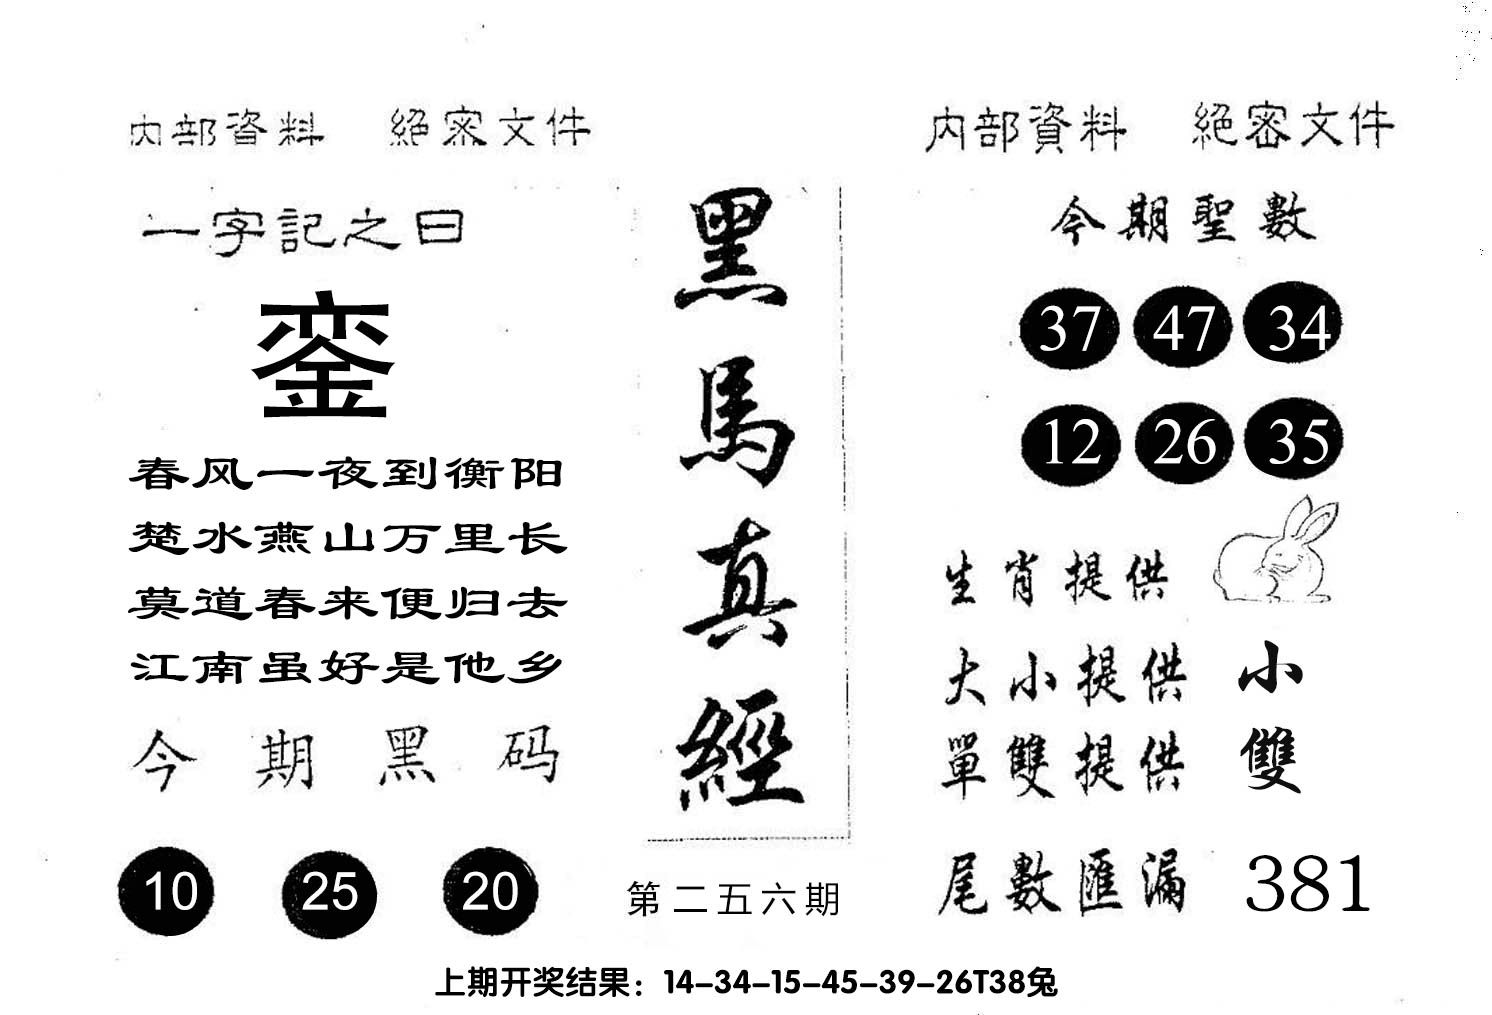 内部資料 絕密文件
一字記之曰
銮
春风一夜到衡阳
楚水燕山万里长
莫道春来便归去
江南虽好是他乡
今期黑码
10 25 20
黑馬真經
第二五六期
内部資料 絕密文件
今期聖數
37 47 34
12 26 35
生肖提供
大小提供 小
單雙提供 雙
尾數匯漏 381
上期开奖结果：14-34-15-45-39-26T38兔